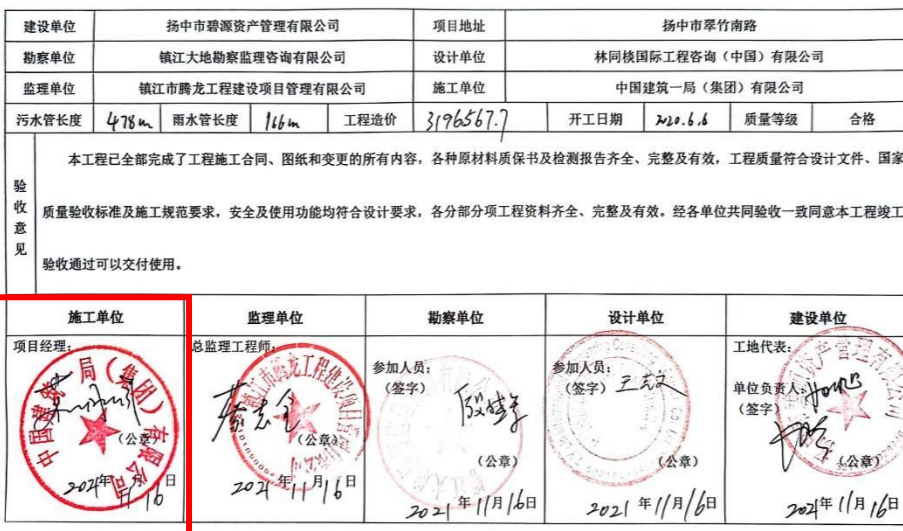 建设单位 扬中市碧源资产管理有限公司 项目地址 扬中市翠竹南路
勘察单位 镇江大地勘察监理咨询有限公司 设计单位 林同棪国际工程咨询（中国）有限公司
监理单位 镇江市腾龙工程建设项目管理有限公司 施工单位 中国建筑一局（集团）有限公司
污水管长度 478m 雨水管长度 166m 工程造价 3196567.7 开工日期 2020.6.6 质量等级 合格
验收意见
本工程已全部完成了工程施工合同、图纸和变更的所有内容，各种原材料质保书及检测报告齐全、完整及有效，工程质量符合设计文件、国家
质量验收标准及施工规范要求，安全及使用功能均符合设计要求，各分部分项工程资料齐全、完整及有效。经各单位共同验收一致同意本工程竣工
验收通过可以交付使用。
施工单位 监理单位 勘察单位 设计单位 建设单位
项目经理： 总监理工程师： 参加人员： 参加人员： 工地代表：
（签字） （签字） 单位负责人：
（签字）
中国建筑一局（集团）有限公司
镇江市腾龙工程建设项目管理有限公司
（公章） （公章） （公章） （公章） （公章）
2021年11月16日 2021年11月16日 2021年11月16日 2021年11月16日 2021年11月16日